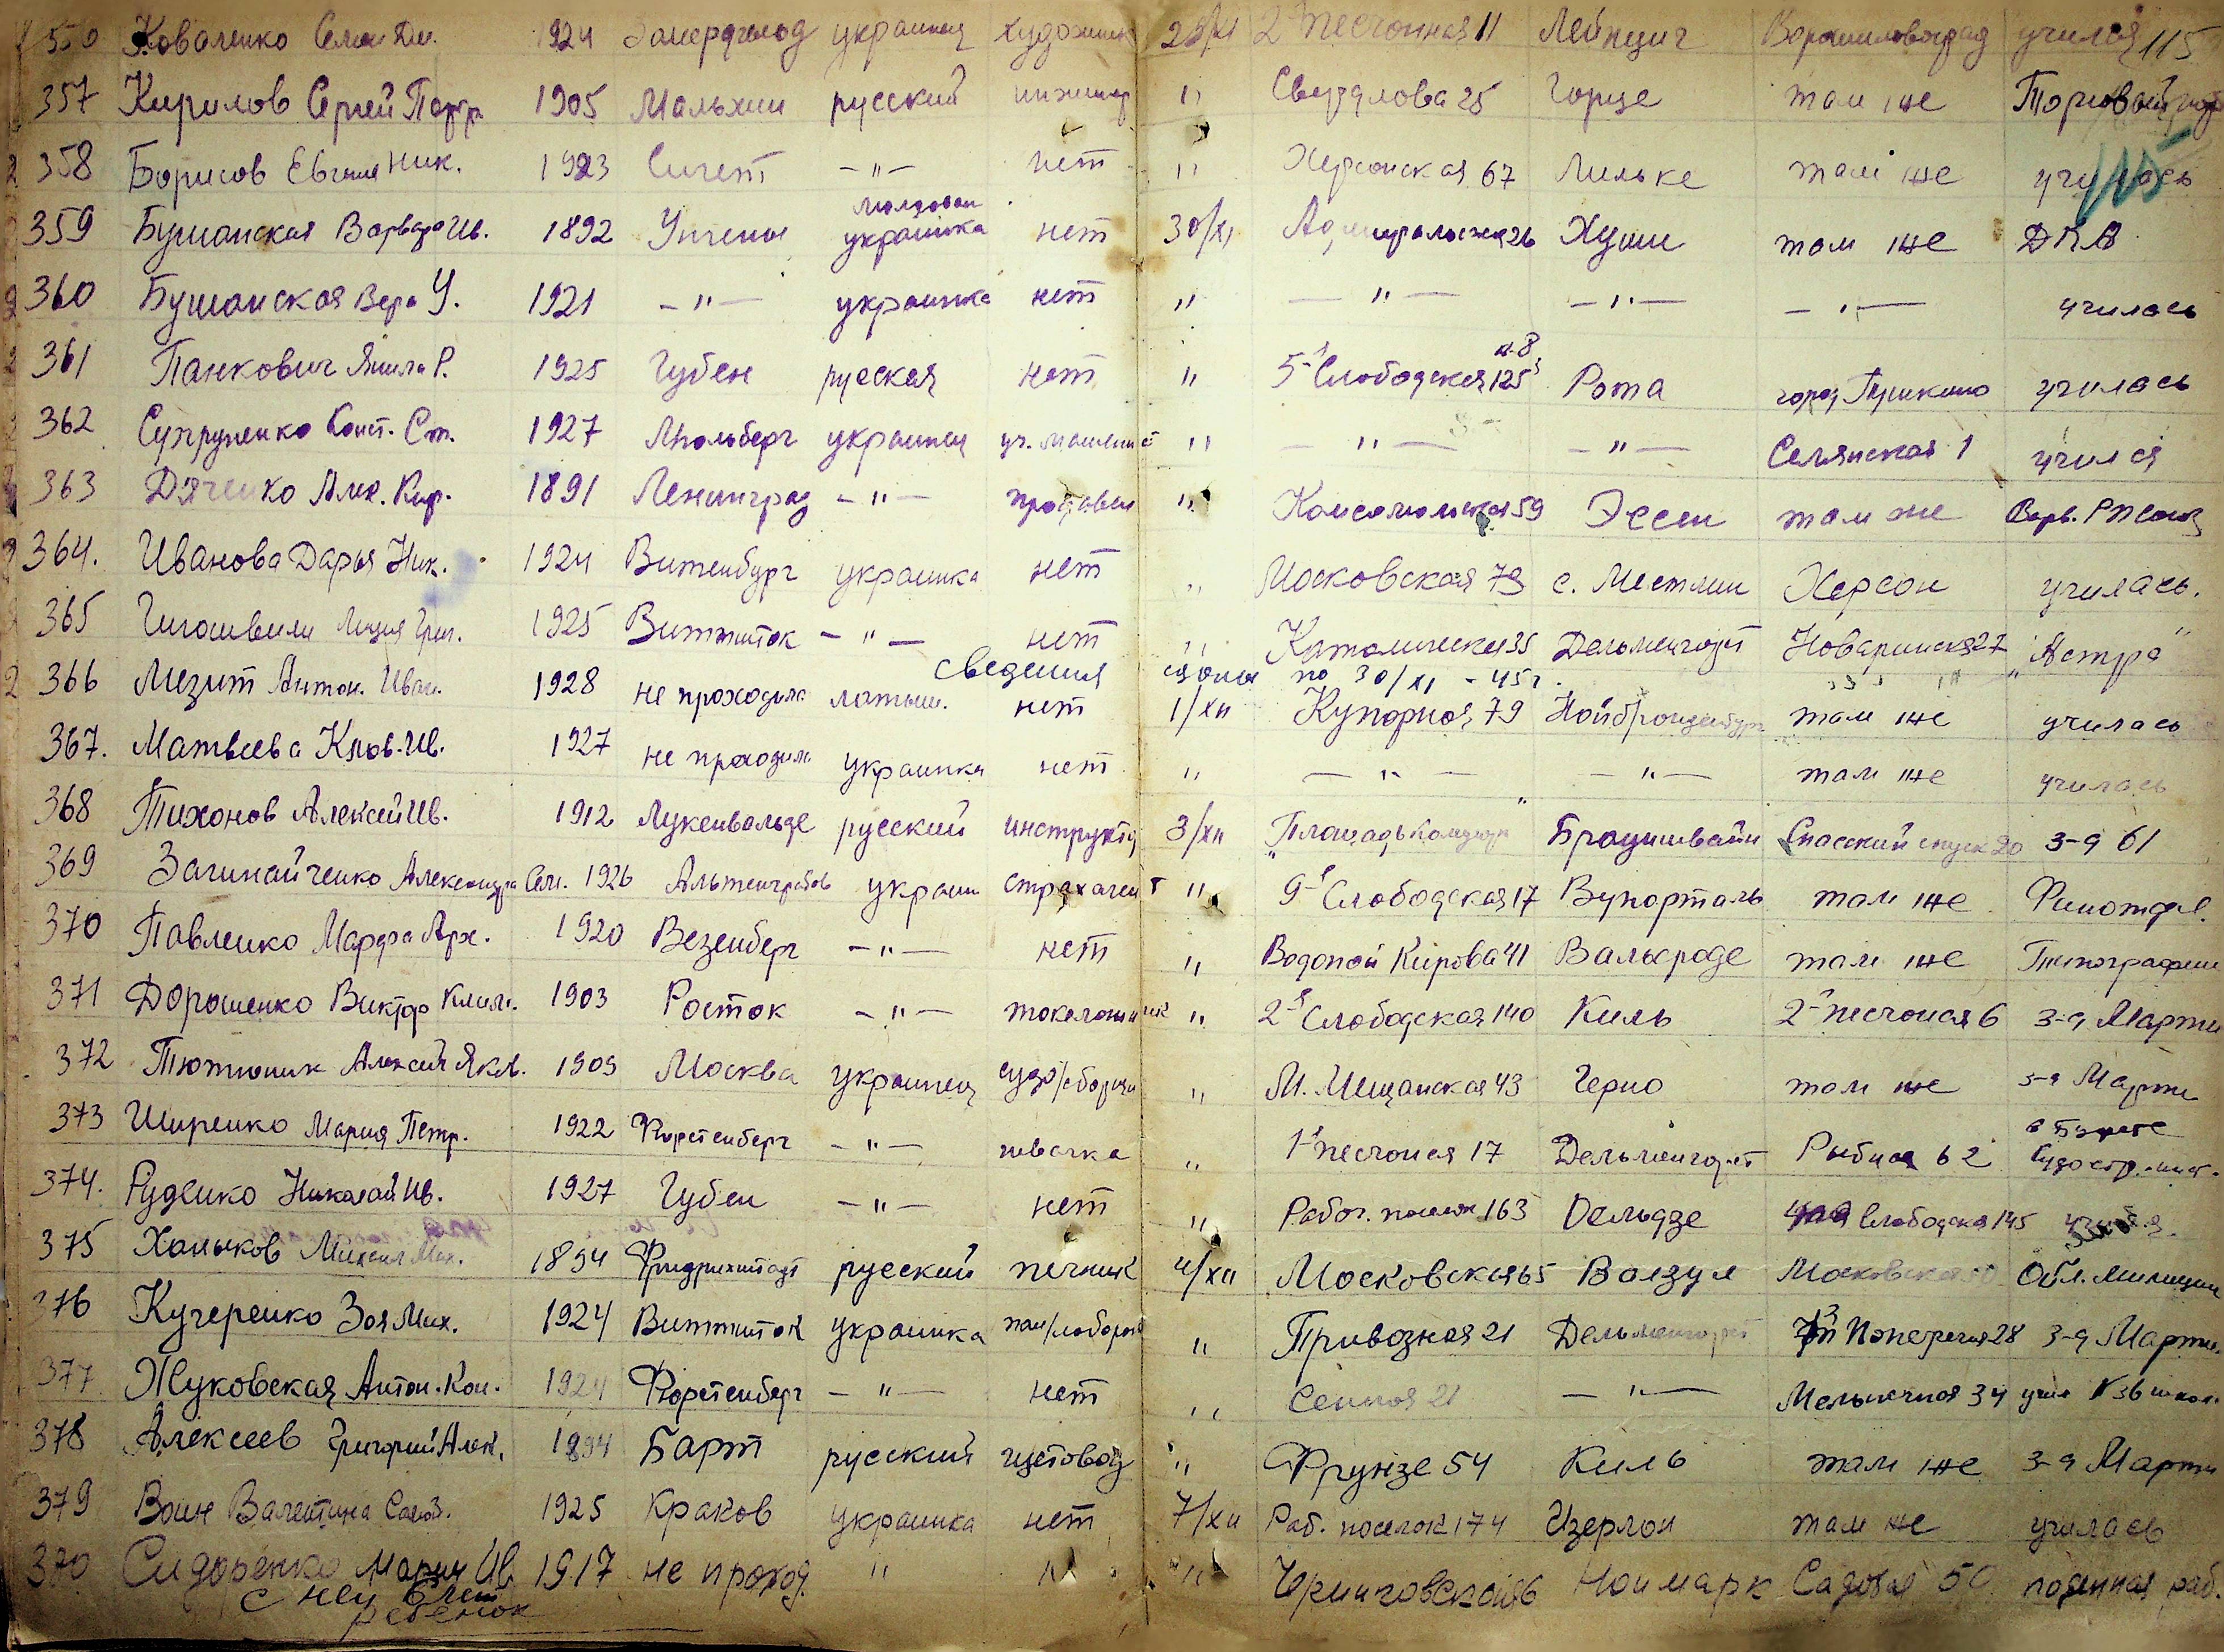 Коваленко Семен Дм. 1924 украинец художник 28/XI 2 Песчонная 11 Лейпциг Ворошиловград учился 115
357 Кирилов Сергей 1905 Мальхин русский инженер " Свердлова 25 Горце там же
358 Борисов Евгений Ник. 1923 Сигет —"— нет " Херсонская 67 Мильке там же 115
молдован
359 Бушанская Варвара Ив. 1892 украинка нет 30/XI Адмиральская 26 Хуши там же
360 Бушанская Вера У. 1921 —"— украинка нет " —"— —"— —"— училась
361 Панкович Р. 1925 Губен русская нет " 5-я Слободская 125 Рота город Пушкино училась
362 Супруненко Конст. Ст. 1927 Мюльберг украинец " —"— —"— Селянская 1 учился
363 Дяченко Алек. Кир. 1891 Ленинград —"— продавец " Комсомольская 59 Эссен там же
364. Иванова Дарья Ник. 1924 Витенбург украинка нет " Московская 79 с. Местлин Херсон училась.
365 Лидия Григ. 1925 Витшток —"— нет " Католическая 35 Дельменгорст Новаринская 27 "Астра"
сведения даны по 30/XI - 45 г.
366 Мезит Антон. Иван. 1928 не проходила латыш. нет 1/XII Купорная 79 Нойбранденбург там же училась
367. Матвеева Клав. Ив. 1927 не проходила украинка нет " —"— —"— там же училась
368 Тихонов Алексей Ив. 1912 Лукенвальде русский инструктор 3/XII Площадь Брауншвайн Спасский спуск 20 з-д 61
369 Загинайченко Александра Сем. 1926 Альтенграбов украин страхагент " 9-я Слободская 17 Вупорталь там же Финотдел.
370 Павленко Марфа Арх. 1920 Везенберг —"— нет " Водопой Кирова 41 Вальсроде там же Типография
371 Дорошенко Виктор Клим. 1903 Росток —"— " 2-я Слободская 140 Киль 2-я Песчоная 6 з-д Марти
372 Тютюник Алексей Яков. 1909 Москва украинец судо/сборщик " М. Мещанская 43 Герно там же з-д Марти
373 Ширенко Мария Петр. 1922 Фюрстенберг —"— швачка " 1-я Песчоная 17 Дельменгорст Рыбная 62 в буфете Судостр. инст.
374. Руденко Николай Ив. 1927 Губен —"— нет " Рабоч. поселок 163 Дельдзе Слободская 145
375 Ханыков Михаил Мих. 1894 Фридрихштадт русский печник 4/XII Московская 65 Московская Обл. милиции
376 Кучеренко Зоя Мих. 1924 Витшток украинка " Привозная 21 Дельменгорст Поперечная 28 з-д Марти.
377 Жуковская Антон. Кон. 1924 Фюрстенберг —"— нет " Сенная 21 —"— Мельничная 34
378 Алексеев Григорий Алек. 1894 Барт русский " Фрунзе 54 Киль там же з-д Марти
379 Воин Валентина 1925 Краков украинка нет 7/XII Раб. поселок 174 Изерлон там же училась
Сидоренко Мария Ив 1917 не проход. " " Черниговская Ноймарк Садовая 50 поденная раб.
с ней
ребенок